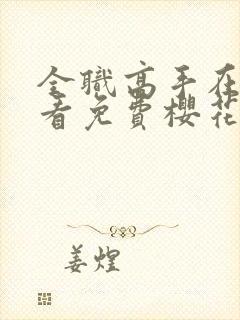 全職高手在
看免費櫻花
姜煌